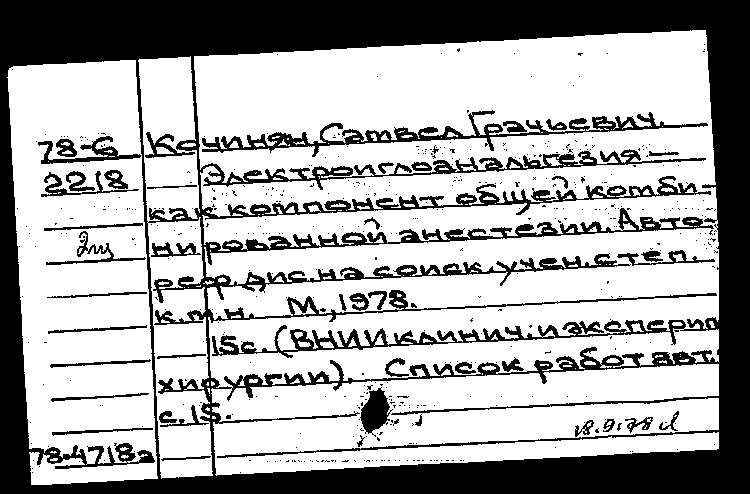 78-6 Кочинян, Сатвел Грачьевич.
2218 Электроиглоанальгезия —
как компонент общей комби-
нированной анестезии. Авто-
реф. дис. на соиск. учен. степ.
к.м.н. М., 1978.
15с. (ВНИИ клинич. и эксперим
хирургии). Список работ авт.
с. 15.
78-4718а